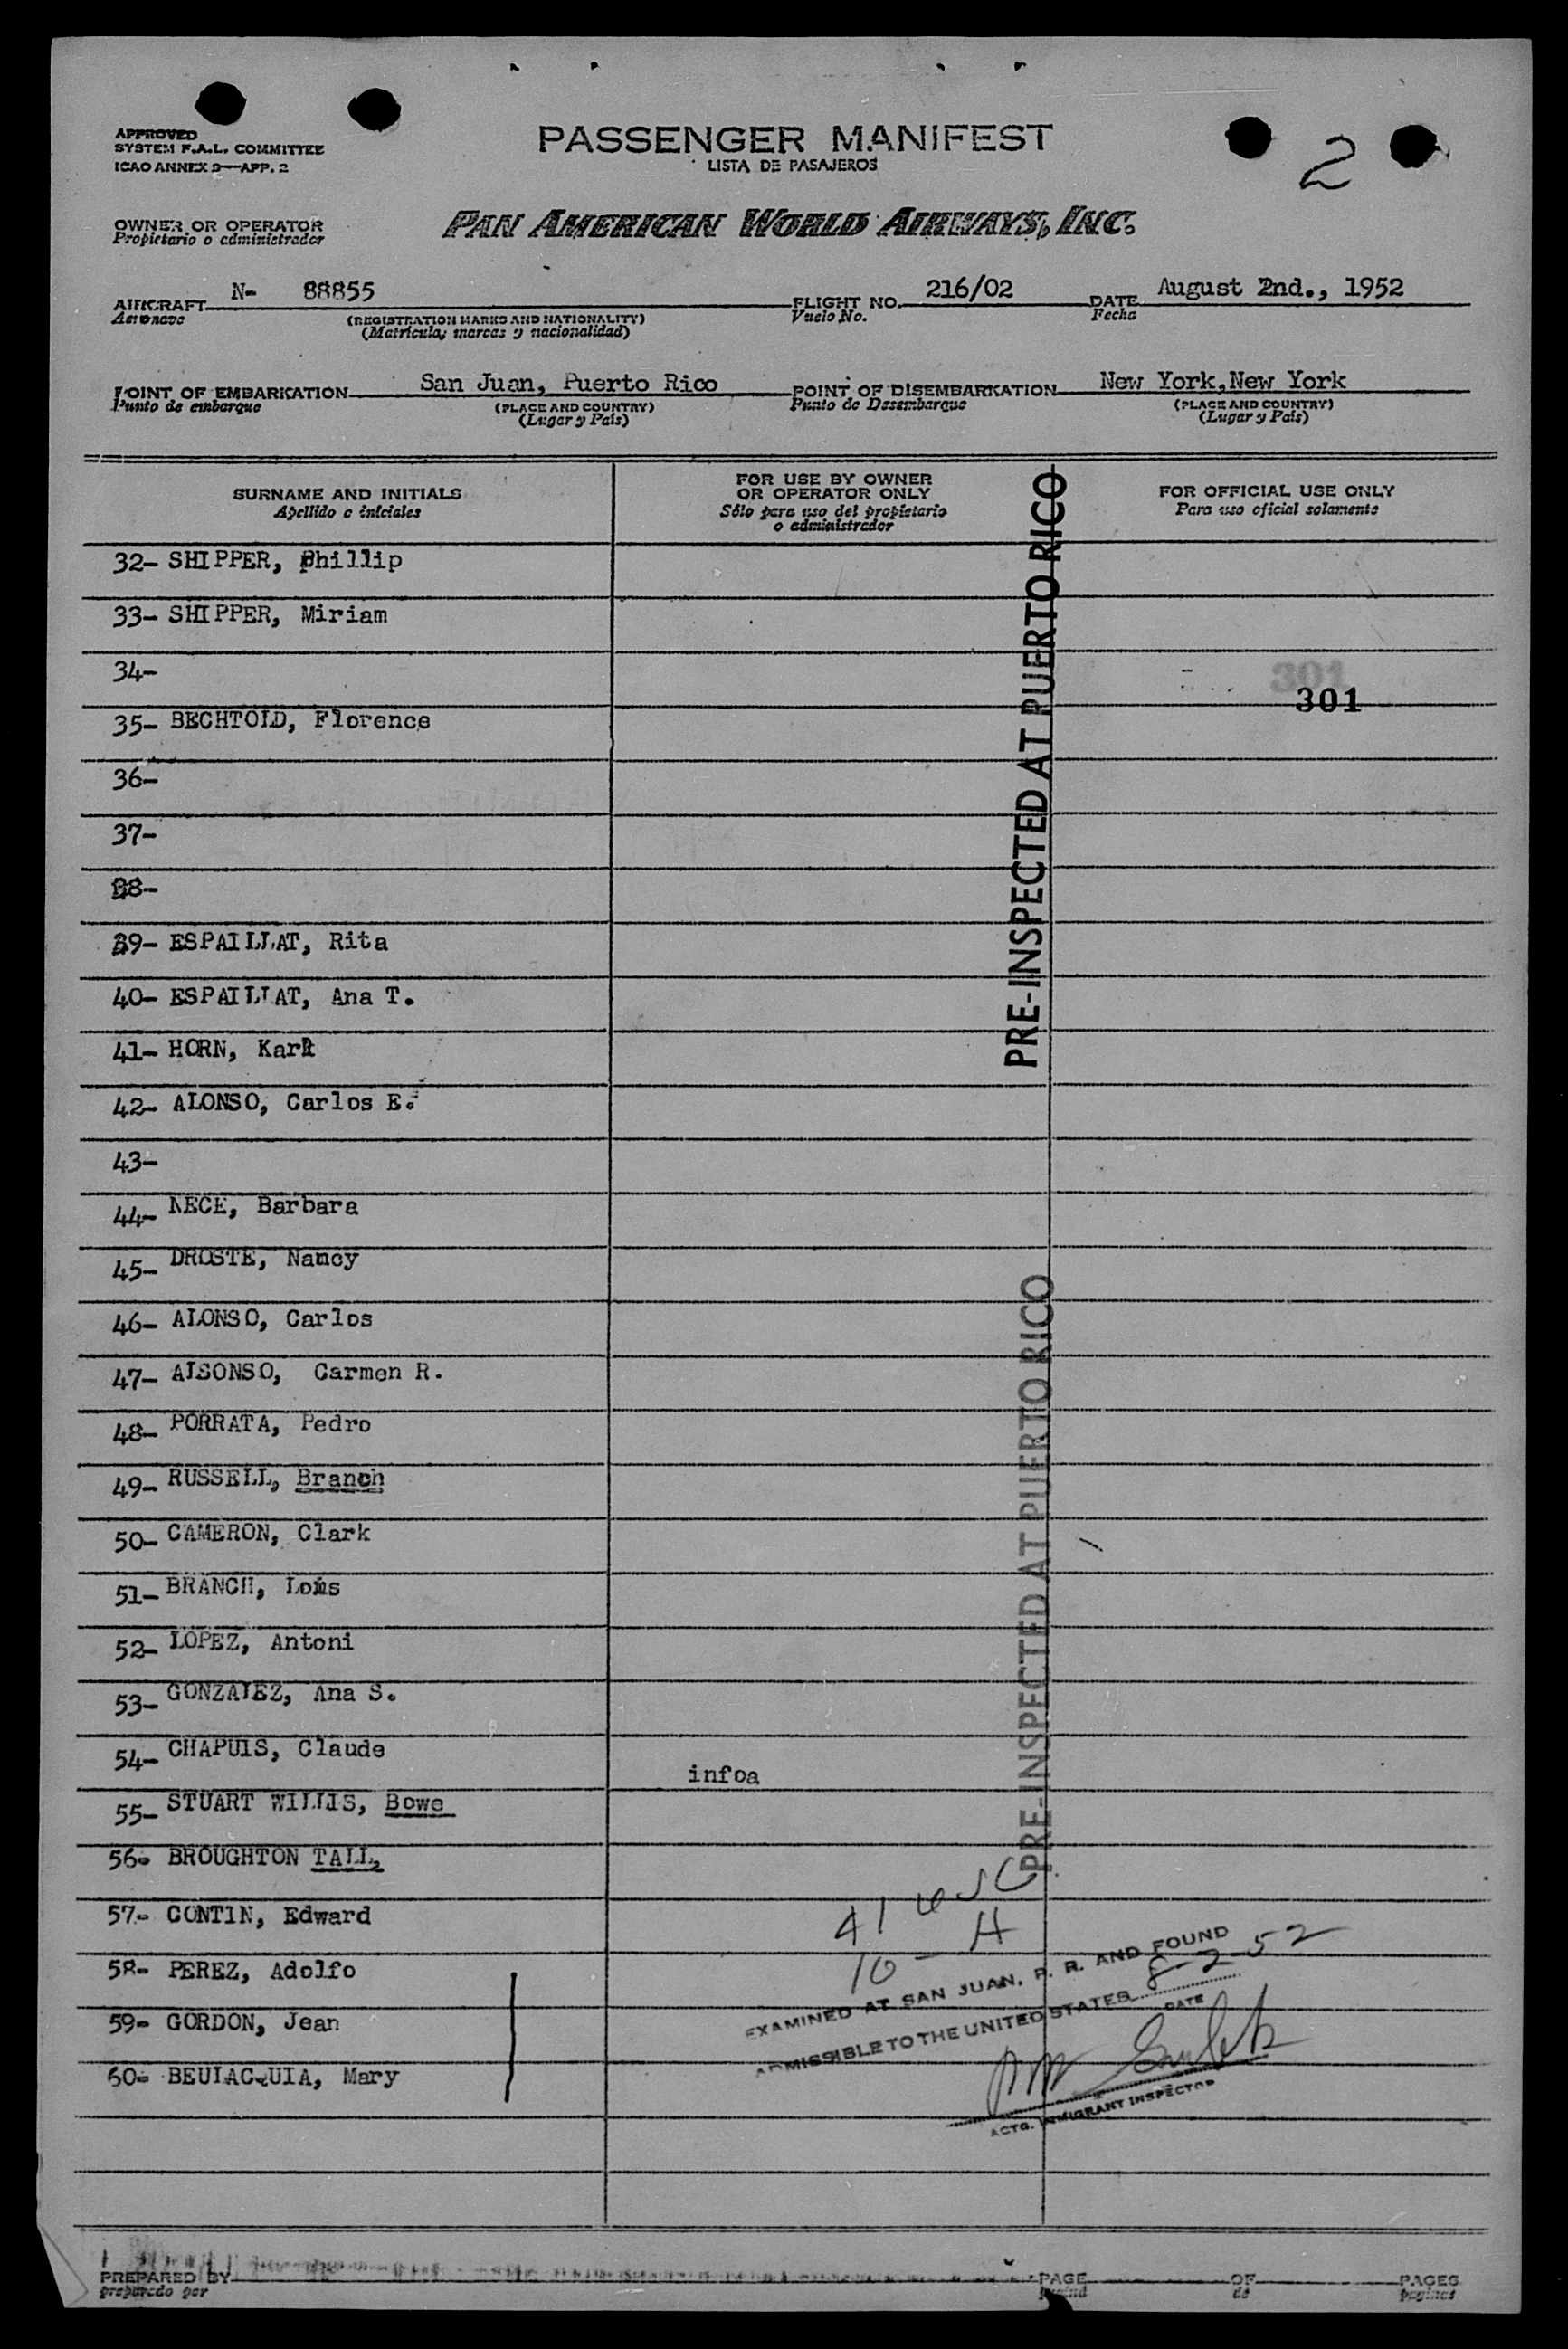 2
APPROVED
SYSTEM F.A.L. COMMITTEE
ICAO ANNEX 9—APP. 2
PASSENGER MANIFEST
LISTA DE PASAJEROS
OWNER OR OPERATOR
Propietario o administrador
PAN AMERICAN WORLD AIRWAYS, INC.
AIRCRAFT N- 88855 FLIGHT NO. 216/02 DATE August 2nd., 1952
Aeronave (REGISTRATION MARKS AND NATIONALITY) Vuelo No. Fecha
(Matrícula, marcas y nacionalidad)
POINT OF EMBARKATION San Juan, Puerto Rico POINT OF DISEMBARKATION New York,New York
Punto de embarque (PLACE AND COUNTRY) Punto de Desembarque (PLACE AND COUNTRY)
(Lugar y País) (Lugar y País)
SURNAME AND INITIALS
Apellido e iniciales
FOR USE BY OWNER
OR OPERATOR ONLY
Sólo para uso del propietario
o administrador
FOR OFFICIAL USE ONLY
Para uso oficial solamente
32- SHIPPER, Phillip
33- SHIPPER, Miriam
34-
301
301
35- BECHTOLD, Florence
36-
37-
38-
39- ESPAILLAT, Rita
40- ESPAILLAT, Ana T.
41- HORN, Kark
42- ALONSO, Carlos E.
43-
44- NECE, Barbara
45- DROSTE, Nancy
46- ALONSO, Carlos
47- ALSONSO, Carmen R.
48- PORRATA, Pedro
49- RUSSELL, Branch
50- CAMERON, Clark
51- BRANCH, Lois
52- LOPEZ, Antoni
53- GONZALEZ, Ana S.
54- CHAPUIS, Claude
infoa
55- STUART WILLIS, Bowe
56- BROUGHTON TALL,
57- CONTIN, Edward
58- PEREZ, Adolfo
59- GORDON, Jean
60- BEULACQUIA, Mary
PRE-INSPECTED AT PUERTO RICO
PRE-INSPECTED AT PUERTO RICO
41 USC
10 - A
EXAMINED AT SAN JUAN, P. R. AND FOUND
ADMISSIBLE TO THE UNITED STATES 8-2-52
DATE
ACTG. IMMIGRANT INSPECTOR
PREPARED BY PAGE OF PAGES
preparado por página de páginas